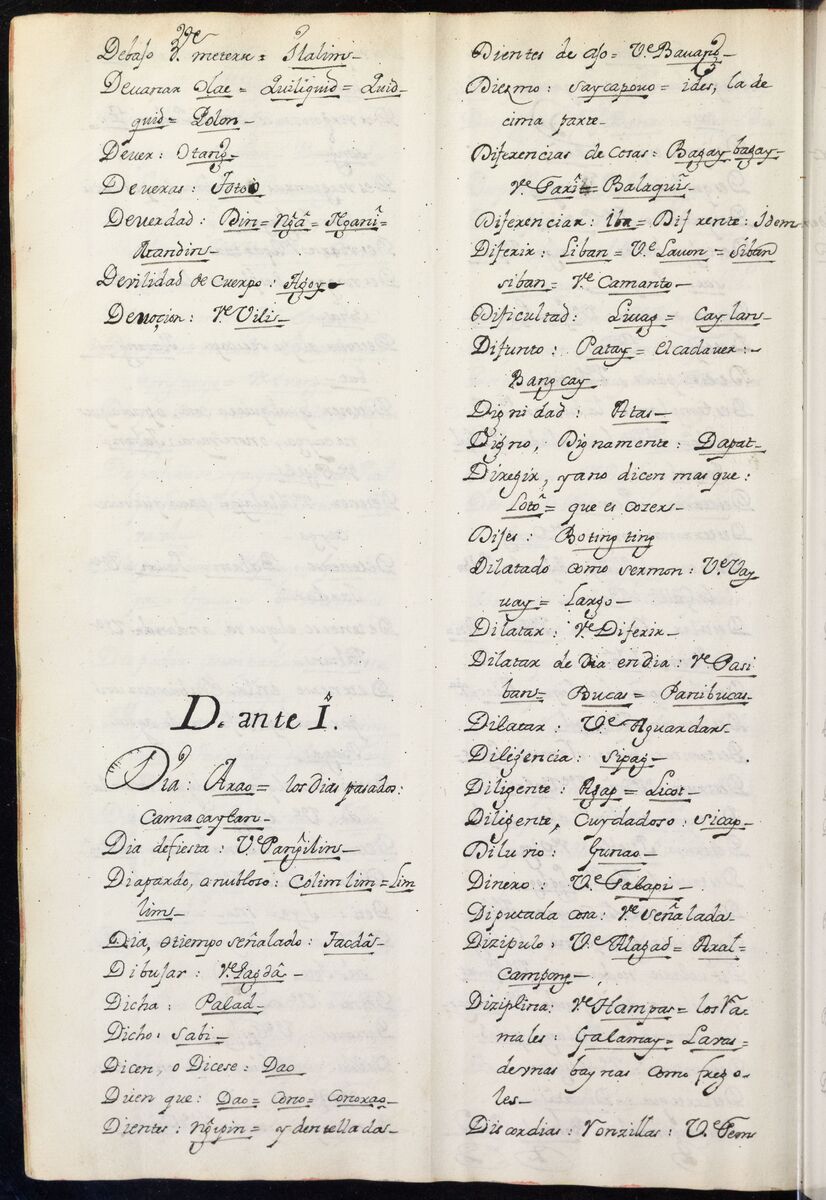 Debajo Ve. meterse = Silalim –
Devanar Olae = Quiliquid = Quid-
quid = Polon –
Dever: Otang –
De veras: Totoo
De verdad: Din = Ngâ = Nganî =
Atandin –
Devilidad de Cuerpo: Agoy –
Devoçion: Ve Vilis –
D. ante Î.
Dia: Arao = los dias pasados:
Camacaylan –
Dia de fiesta: Ve. Pangilin –
Dia pardo, anubloso: Colimlim = Lim
lim –
Dia, otiempo señalado: Tacdâ –
Dibujar: Ve Pagdâ –
Dicha: Palad –
Dicho: Sabi –
Dicen, o Dicese: Dao
Dicen que: Dao = Cono = Conorao –
Dientes: Ngipin = y dentelladas –
Dientes de ajo = Ve. Bauang –
Diesmo: Saycapouo = ides, la de
cima parte –
Diferencias de cosas: Bagay bagay
Ve Parî = Balaquî –
Diferenciar: Iba = Diferente: Idem
Diferir: Liban = Ve Lauon = Siban
siban = Ve Camarito –
Dificultad: Liuag = Caylan –
Difunto: Patay = el cadaver: –
Bangcay
Dignidad: Atas –
Digno, Dignamente: Dapat –
Diregir, yano dicen mas que:
Lotô = que es cozer –
Dijes: Boting ting
Dilatado como sermon: Ve. Vay
uay = Largo –
Dilatar: Ve Diferir –
Dilatar de Dia en dia: Ve Pasi
ban = Bucas = Panibucas –
Dilatar: Ve Aguardar –
Diligencia: Sipag –
Diligente: Agap = Licot –
Diligente, Cuydadoso: Sicap –
Diluvio: Gunao –
Dinero: Ve. Salapi –
Diputada cosa: Ve señalada –
Dizipulo: Ve. Alagad = Aral =
Campong –
Diziplina: Ve Hampas = los Ra-
males: Galamay = Lavas =
de vnas baynas como frego-
les –
Discordias: Ronzillas: Ve. Tem